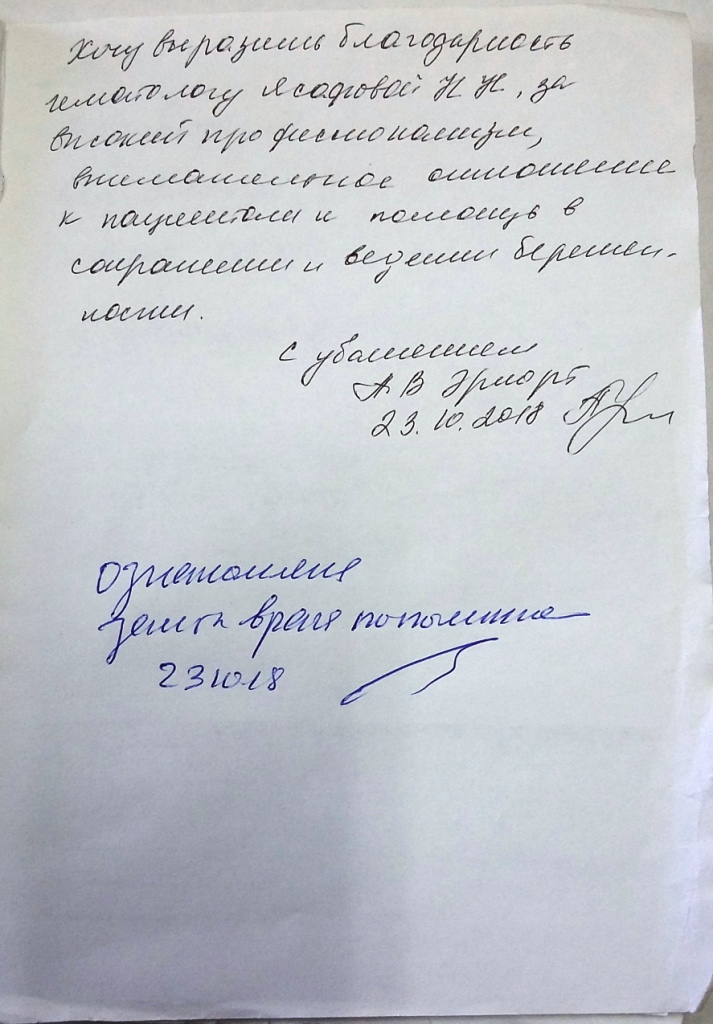 Хочу выразить благодарность
гематологу Ясафовой Н Н, за
высокий профессионализм,
внимательное отношение
к пациентам и помощь в
сохранении и ведении беремен-
ности.
С уважением
А В
23.10.2018
Ознакомлена
врача
23 10 18